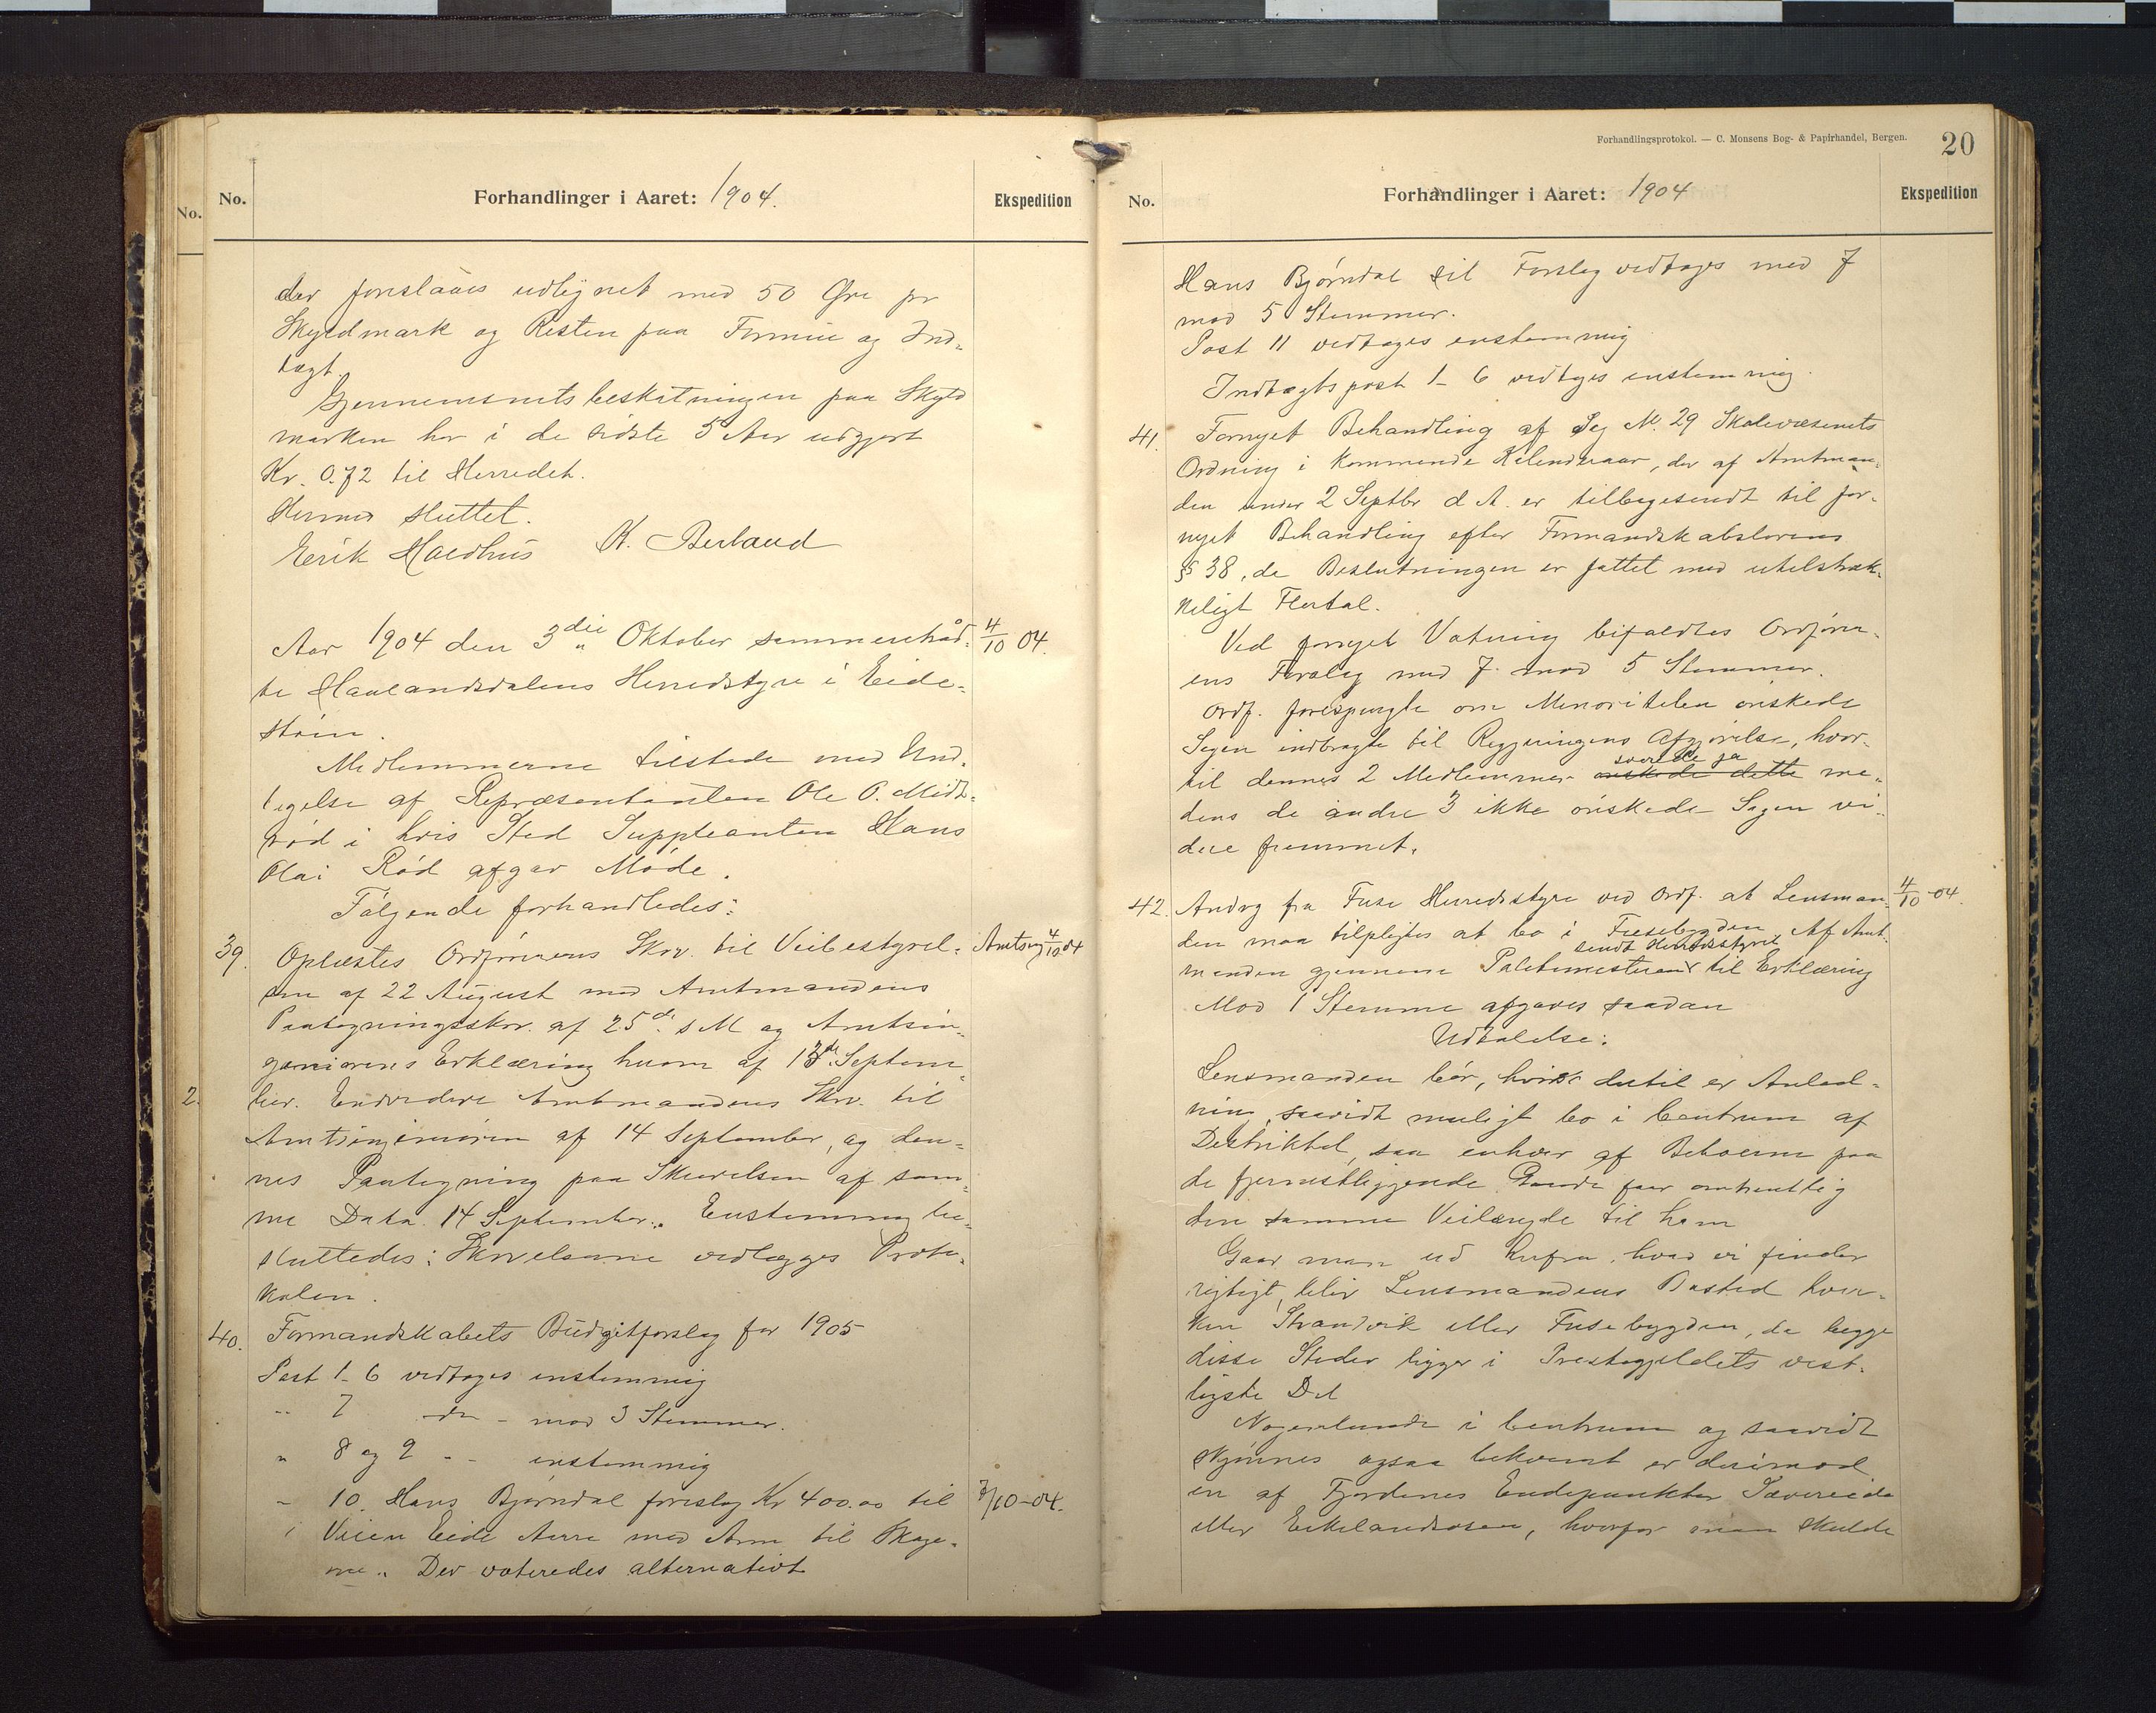 No.
No.
Forhandlinger i Aaret: 1904.
Ekspedition
der foreslaaes udlignet med 50 Øre pr
Skyldmark og Resten paa Formue og Ind-
tægt.
Gjennemsnitsbeskatningen paa Skyld
marken har i de sidste 5 Aar udgjort
Kr. 0.72 til Herredet.
Hermed sluttet.
Erik Hardhus K. Berland
Aar 1904 den 3die Oktober sammenträd-
te Haalandsdalens Herredstyre i Eide-
støin.
4/10 04.
Medlemmerne tilstede med Und-
tagelse af Repræsentanten Ole O. Midt-
rød i hvis Sted Suppleanten Hans
Olai Rød afgav Møde.
Følgende forhandledes:
39. Oplæstes Ordførerens Skrv. til Veibestyrel-
Amtsing 4/10 04
sen af 22 August med Amtmandens
Paategningsskrv. af 25de s M og Amtsin-
geniørens Erklæring herom af 13de Septem-
2.
ber. Endvidere Amtmandens Skrv. til
Amtsingeniøren af 14 September, og den-
nes Paategning paa Skrivelsen af sam-
me Dato 14 September. Enstemmig be-
sluttedes: Skrivelserne vedlægges Proto-
kolen.
40. Formandskabets Büdgetforslag for 1905
Post 1-6 vedtoges enstemmig
" 7 do - mod 3 Stemmer.
" 8 og 9 - - enstemmig
- 10. Hans Bjørndal foreslog Kr 400.00 til
7/10-04.
Veien Eide Aarre med Arm til Skoge-
ne. Der voteredes alternativt
Forhandlingsprotokol. — C. Monsens Bog- & Papirhandel, Bergen.
20
No.
Forhandlinger i Aaret: 1904
Ekspedition
Hans Bjørndal sit Forslag vedtoges med 7
mod 5 Stemmer.
Post 11 vedtoges enstemmig
Indtægtspost 1-6 vedtoges enstemmig.
41. Fornyet Behandling af Sag No. 29 Skolevæsenets
Ordning i kommende Kalenderaar, der af Amtman-
den under 2 Septbr d A. er tilbagesendt til for-
nyet Behandling efter Formandskabslovens
§ 38, da Beslutningen er fattet med utilstræk-
keligt Flertal.
Ved fornyet Votering bifaldtes Ordfører-
ens Forslag med 7 mod 5 Stemmer.
Ordf. forespurgte om Minoriteten ønskede
Sagen indbragte til Regjeringens Afgjørelse, hvor-
svarede ja
til dennes 2 Medlemmer ønskede dette me-
dens de andre 3 ikke ønskede Sagen vi-
dere fremmet.
42. Andrg fra Fuse Herredsstyre ved Ordf. at Lensman-
4/10-04.
den maa tilpligtes at bo i Fusebygden. Af Amt-
sendt Herredsstyret
manden gjennem til Erklæring
Mod 1 Stemme afgaves saadan
Udtalelse:
Lensmanden bør, hvis dertil er Anled-
ning, saavidt muligt bo i Centrum af
Distriktet, saa enhver af Beboerne paa
de fjernestliggende Gaarde faar omtrentlig
den samme Veilængde til ham
Gaar man ud herfra, hvad vi finder
rigtigt, blir Lensmandens Bosted hver-
ken Strandvik eller Fusebygden, da begge
disse Steder ligger i Prestegjeldets vest-
ligste Del
Nogenlunde i Centrum og saavidt
skjønnes ogsaa bekvemt er derimod
en af Fjordenes Endepunkter Sævereide
eller Eikelandsosen, hvorfor man skulde